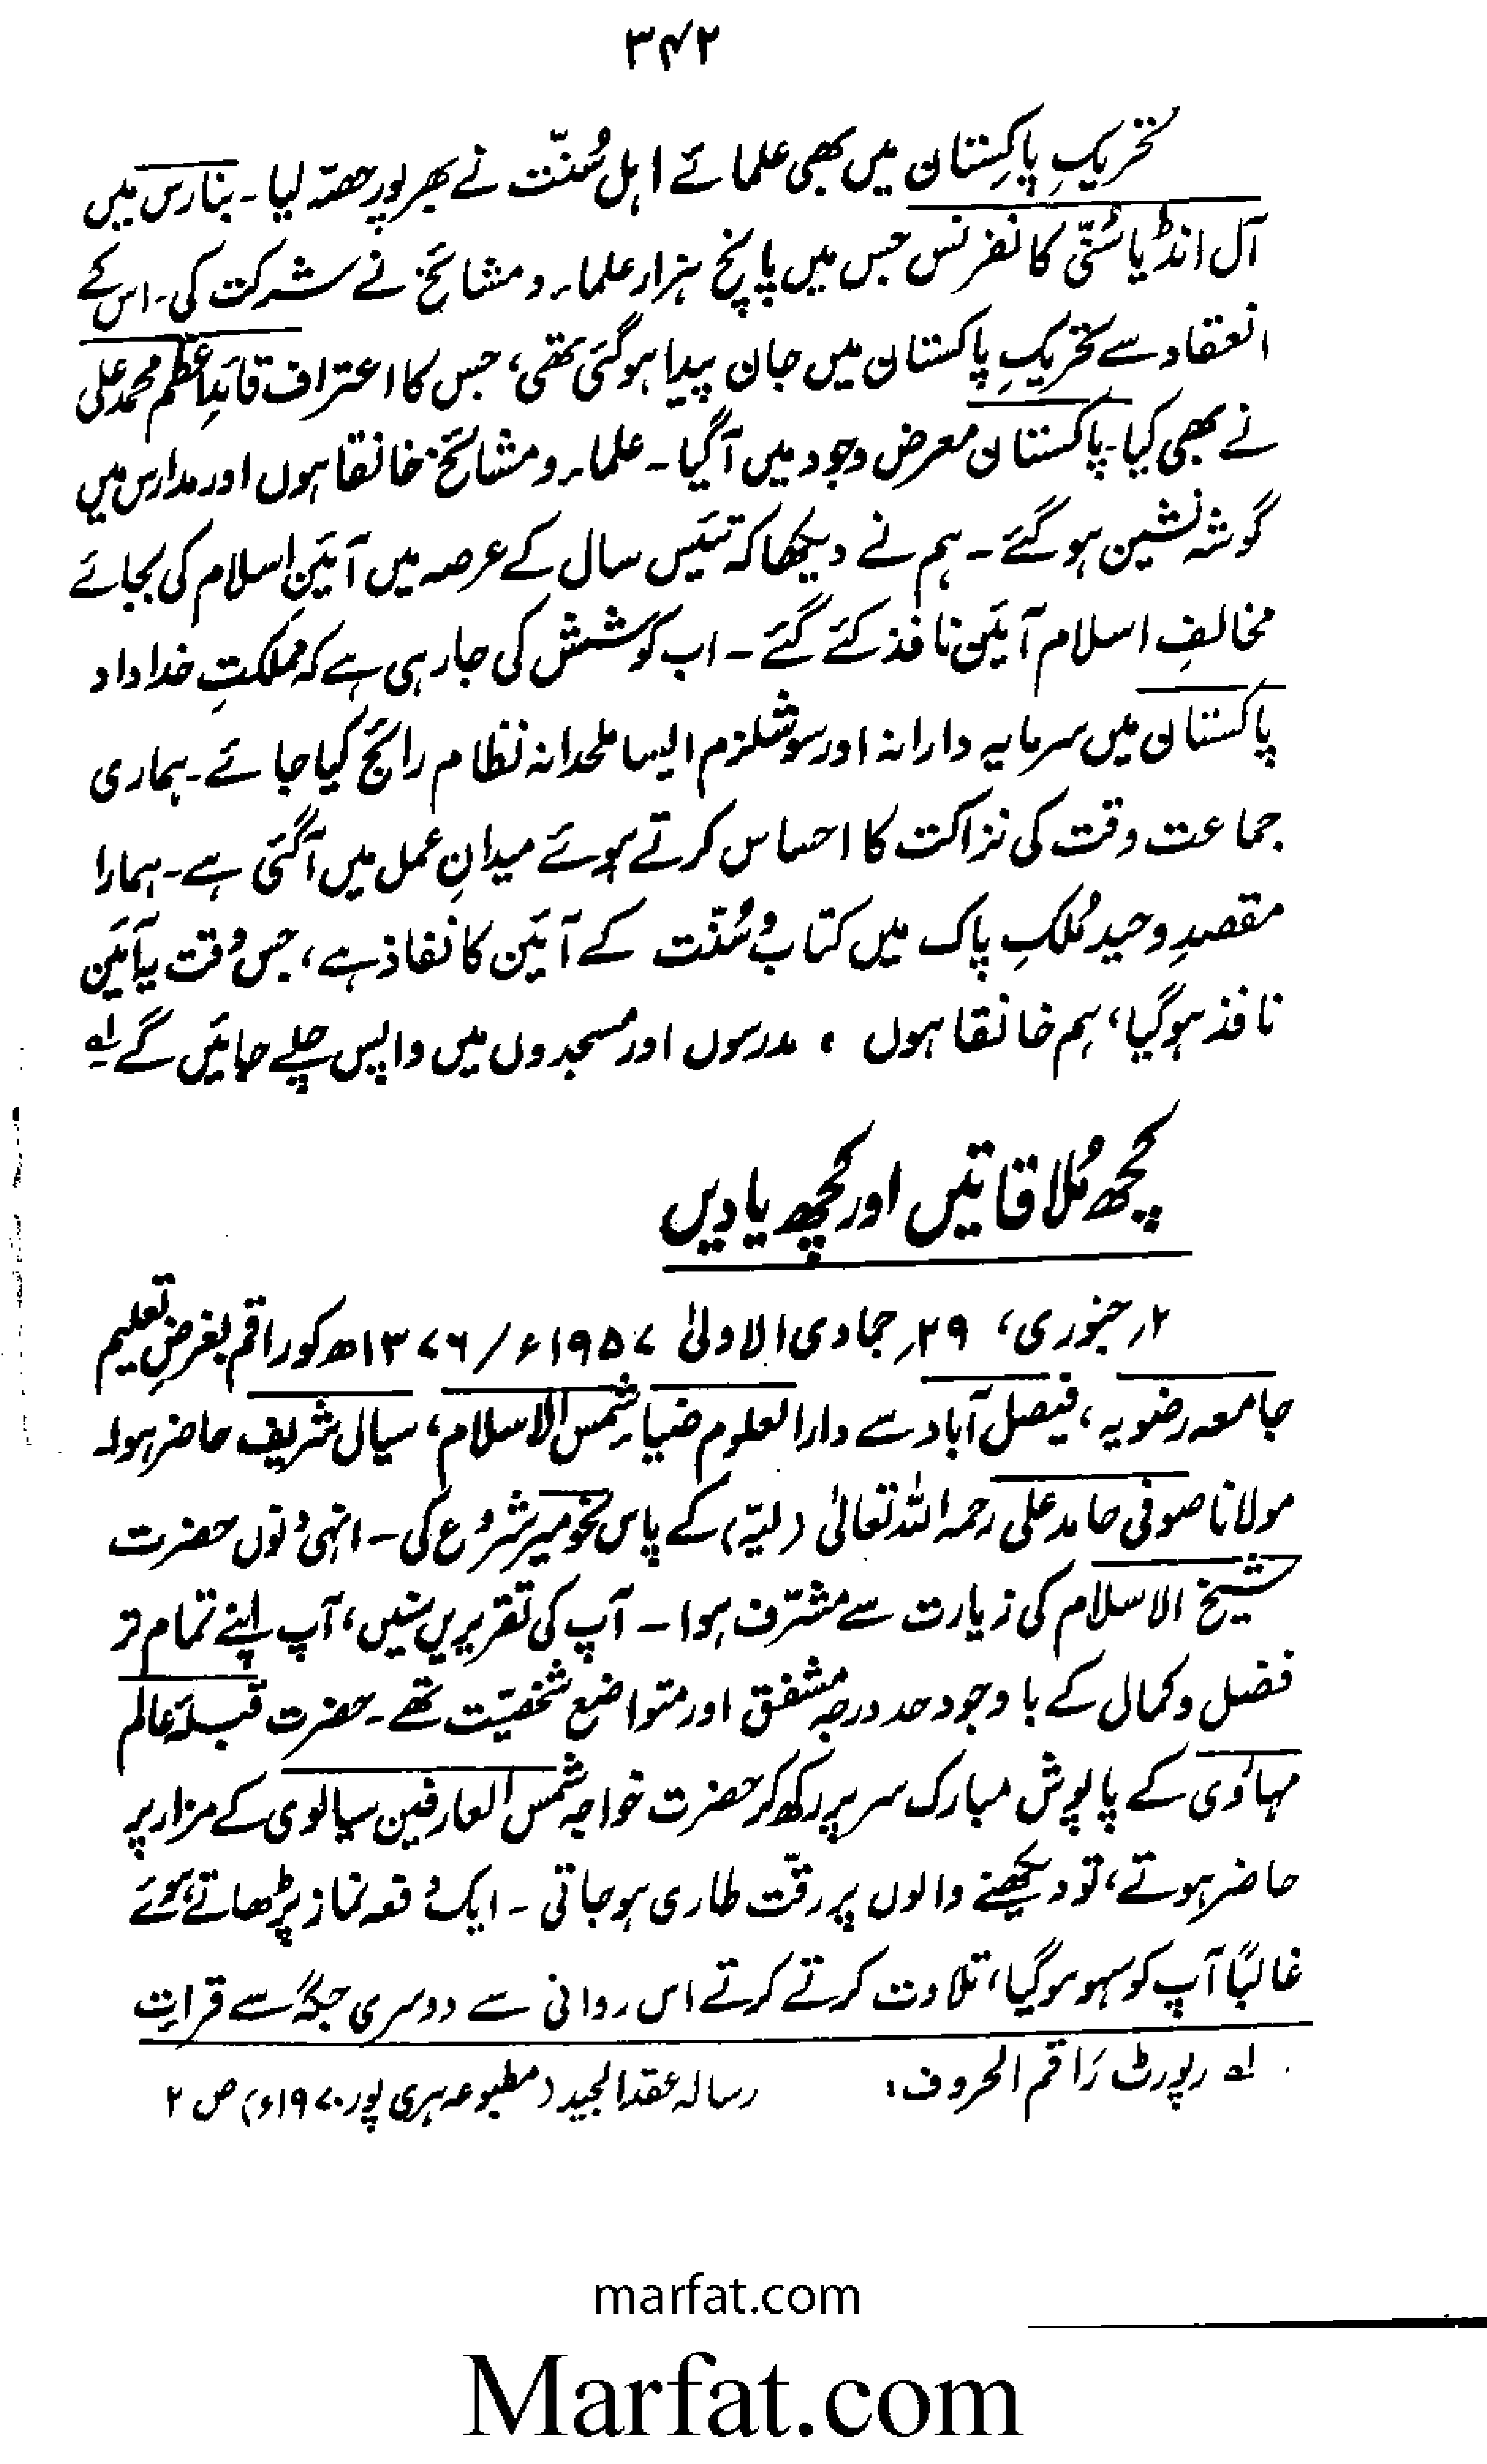 ۳۴۲
تحریکِ پاکِستان میں بھی علمائے اہلِ سُنّت نے بھرپور حصّہ لیا۔ بنارس میں
آل انڈیا سُنّی کانفرنس جس میں پانچ ہزار علماء و مشائخ نے شرکت کی۔ اس کے
انعقاد سے تحریکِ پاکستان میں جان پیدا ہوگئی تھی، جس کا اعتراف قائدِاعظم محمد علی
نے بھی کیا۔ پاکستان معرض وجود میں آگیا۔ علماء و مشائخ خانقاہوں اور مدارس میں
گوشہ نشین ہوگئے۔ ہم نے دیکھا کہ تئیس سال کے عرصہ میں آئینِ اسلام کی بجائے
مخالفِ اسلام آئین نافذ کئے گئے۔ اب کوشش کی جارہی ہے کہ مملکتِ خداداد
پاکستان میں سرمایہ دارانہ اور سوشلزم ایسا ملحدانہ نظام رائج کیا جائے۔ ہماری
جماعت وقت کی نزاکت کا احساس کرتے ہوئے میدانِ عمل میں آگئی ہے۔ ہمارا
مقصدِ وحید مُلکِ پاک میں کتاب و سُنّت کے آئین کا نفاذ ہے، جس وقت یہ آئین
نافذ ہوگیا، ہم خانقاہوں ، مدرسوں اور مسجدوں میں واپس چلے جائیں گے لہ
کچھ مُلاقاتیں اور کچھ یادیں
۲؍ جنوری، ۲۹؍ جمادی الاولیٰ ۱۹۵۷ء/۱۳۷۶ھ کو راقم بغرضِ تعلیم
جامعہ رضویہ، فیصل آباد سے دارالعلوم ضیاء شمس الاسلام، سیال شریف حاضر ہوا۔
مولانا صوفی حامد علی رحمہ اللہ تعالیٰ (لیّہ) کے پاس نحو میر شروع کی۔ انہی دنوں حضرت
شیخ الاسلام کی زیارت سے مشرّف ہوا۔ آپ کی تقریریں سنیں، آپ اپنے تمام تر
فضل و کمال کے باوجود حد درجہ مشفق اور متواضع شخصیّت تھے۔ حضرت قبلۂ عالم
مہاروی کے پاپوش مبارک سر پر رکھ کر حضرت خواجہ شمس العارفین سیالوی کے مزار پر
حاضر ہوتے، تو دیکھنے والوں پر رقّت طاری ہوجاتی۔ ایک دفعہ نماز پڑھاتے ہوئے
غالبًا آپ کو سہو ہوگیا، تلاوت کرتے کرتے اس روانی سے دوسری جگہ سے قرات
لہ رپورٹ راقم الحروف: رسالہ عقد الجید (مطبوعہ ہری پور ۱۹۷۰ء) ص ۲
marfat.com
Marfat.com